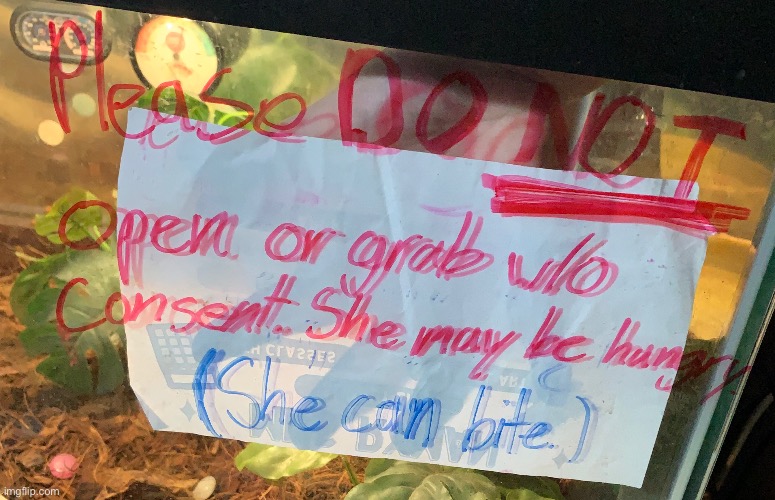 Please DO NOT
open or grab w/o
consent. She may be hungry
(She can bite.)
H CLASSES
imgflip.com